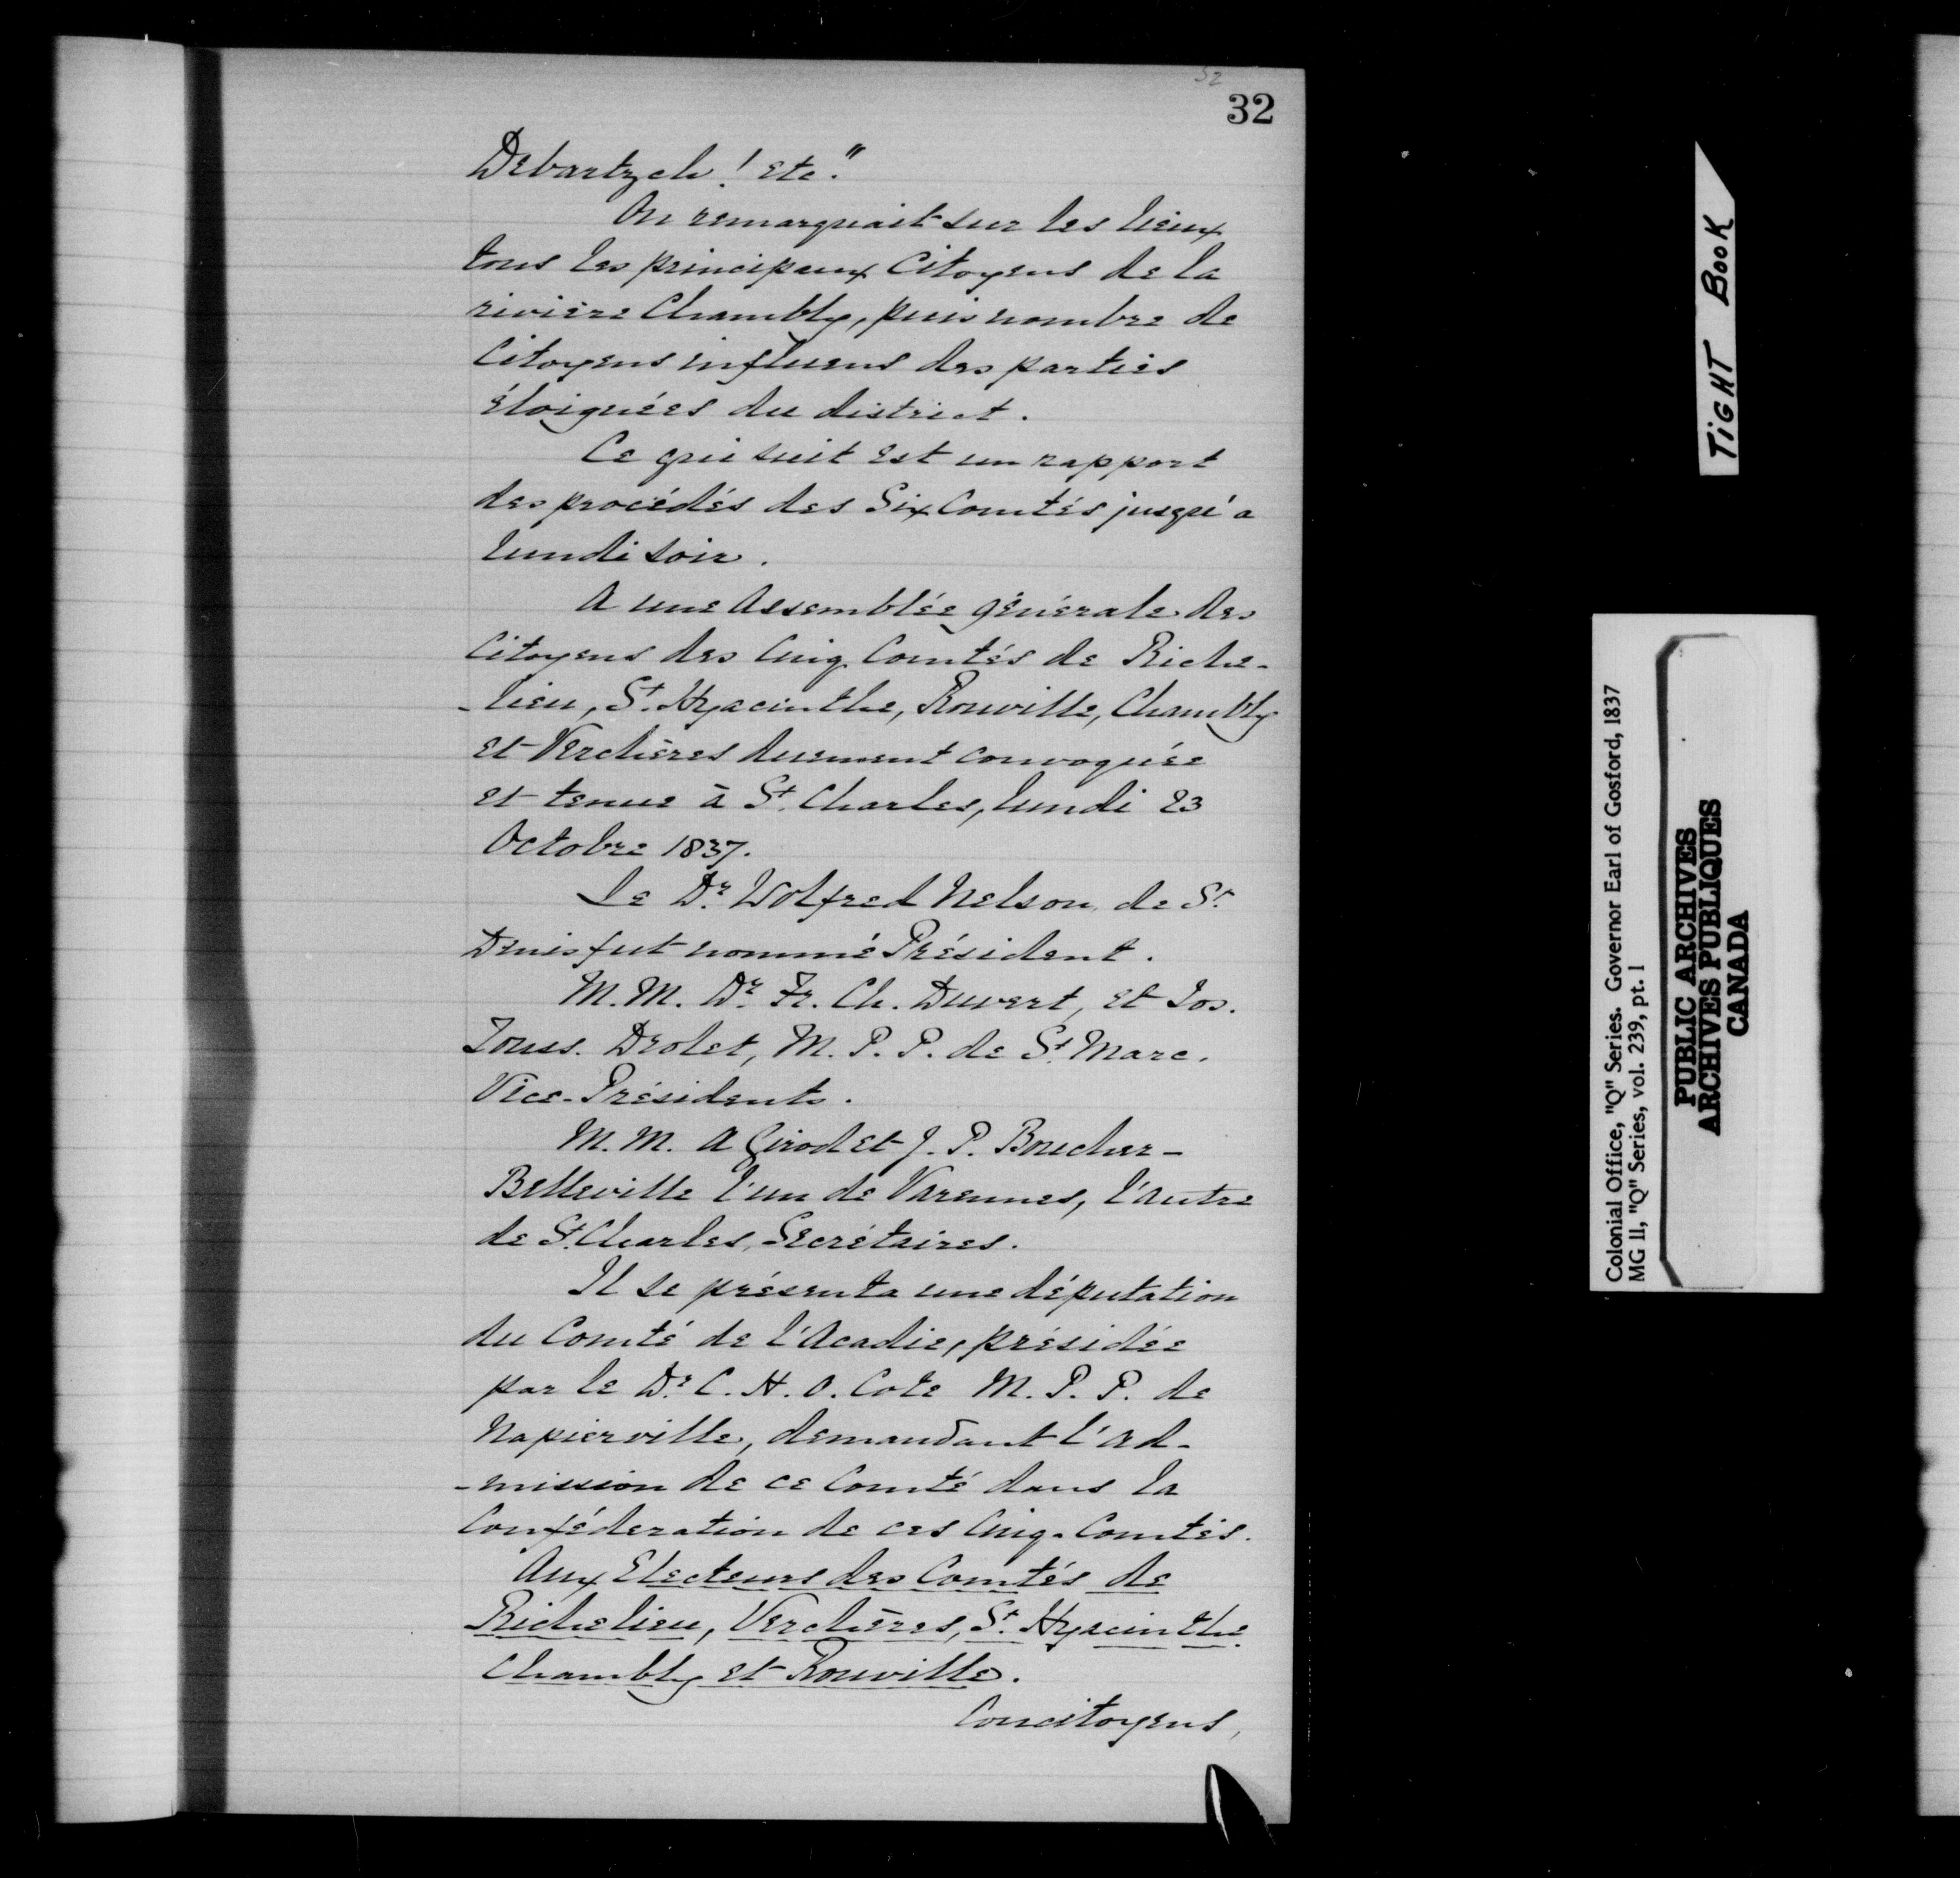 52
32
Debartzch! etc."
On remarquait sur les lieux
tous les principaux Citoyens de la
rivière Chambly, puis nombre de
Citoyens influens des parties
éloignées du district.
Ce qui suit est un rapport
des procédés des Six Comtés jusqu'a
lundi soir.
A une Assemblée générale des
Citoyens des Cinq Comtés de Riche-
-lieu, St. Hyacinthe, Rouville, Chambly
et Verchères duement convoquée
et tenue à St. Charles, lundi 23
Octobre 1837.
Le Dr. Wolfred Nelson de St.
Denis fut nommé Président.
M.M. Dr. Fr. Ch. Duvert, et Jos.
Touss. Drolet, M.P.P. de St. Marc.
Vice-Présidents.
M.M. A Girod et J.P. Boucher-
Belleville l'un de Varennes, l'autre
de St. Charles, Secrétaires.
Il se présenta une députation
du Comté de l'Acadie, présidée
par le Dr. C.H.O. Cote M.P.P. de
Napierville, demandant l'ad-
-mission de ce Comté dans la
Conféderation de ces Cinq-Comtés.
Aux Electeurs des Comtés de
Richelieu, Verchères, St. Hyacinthe
Chambly et Rouville.
Concitoyens,
TIGHT BOOK
Colonial Office, "Q" Series. Governor Earl of Gosford, 1837
MG 11, "Q" Series, vol. 239, pt. 1
PUBLIC ARCHIVES
ARCHIVES PUBLIQUES
CANADA